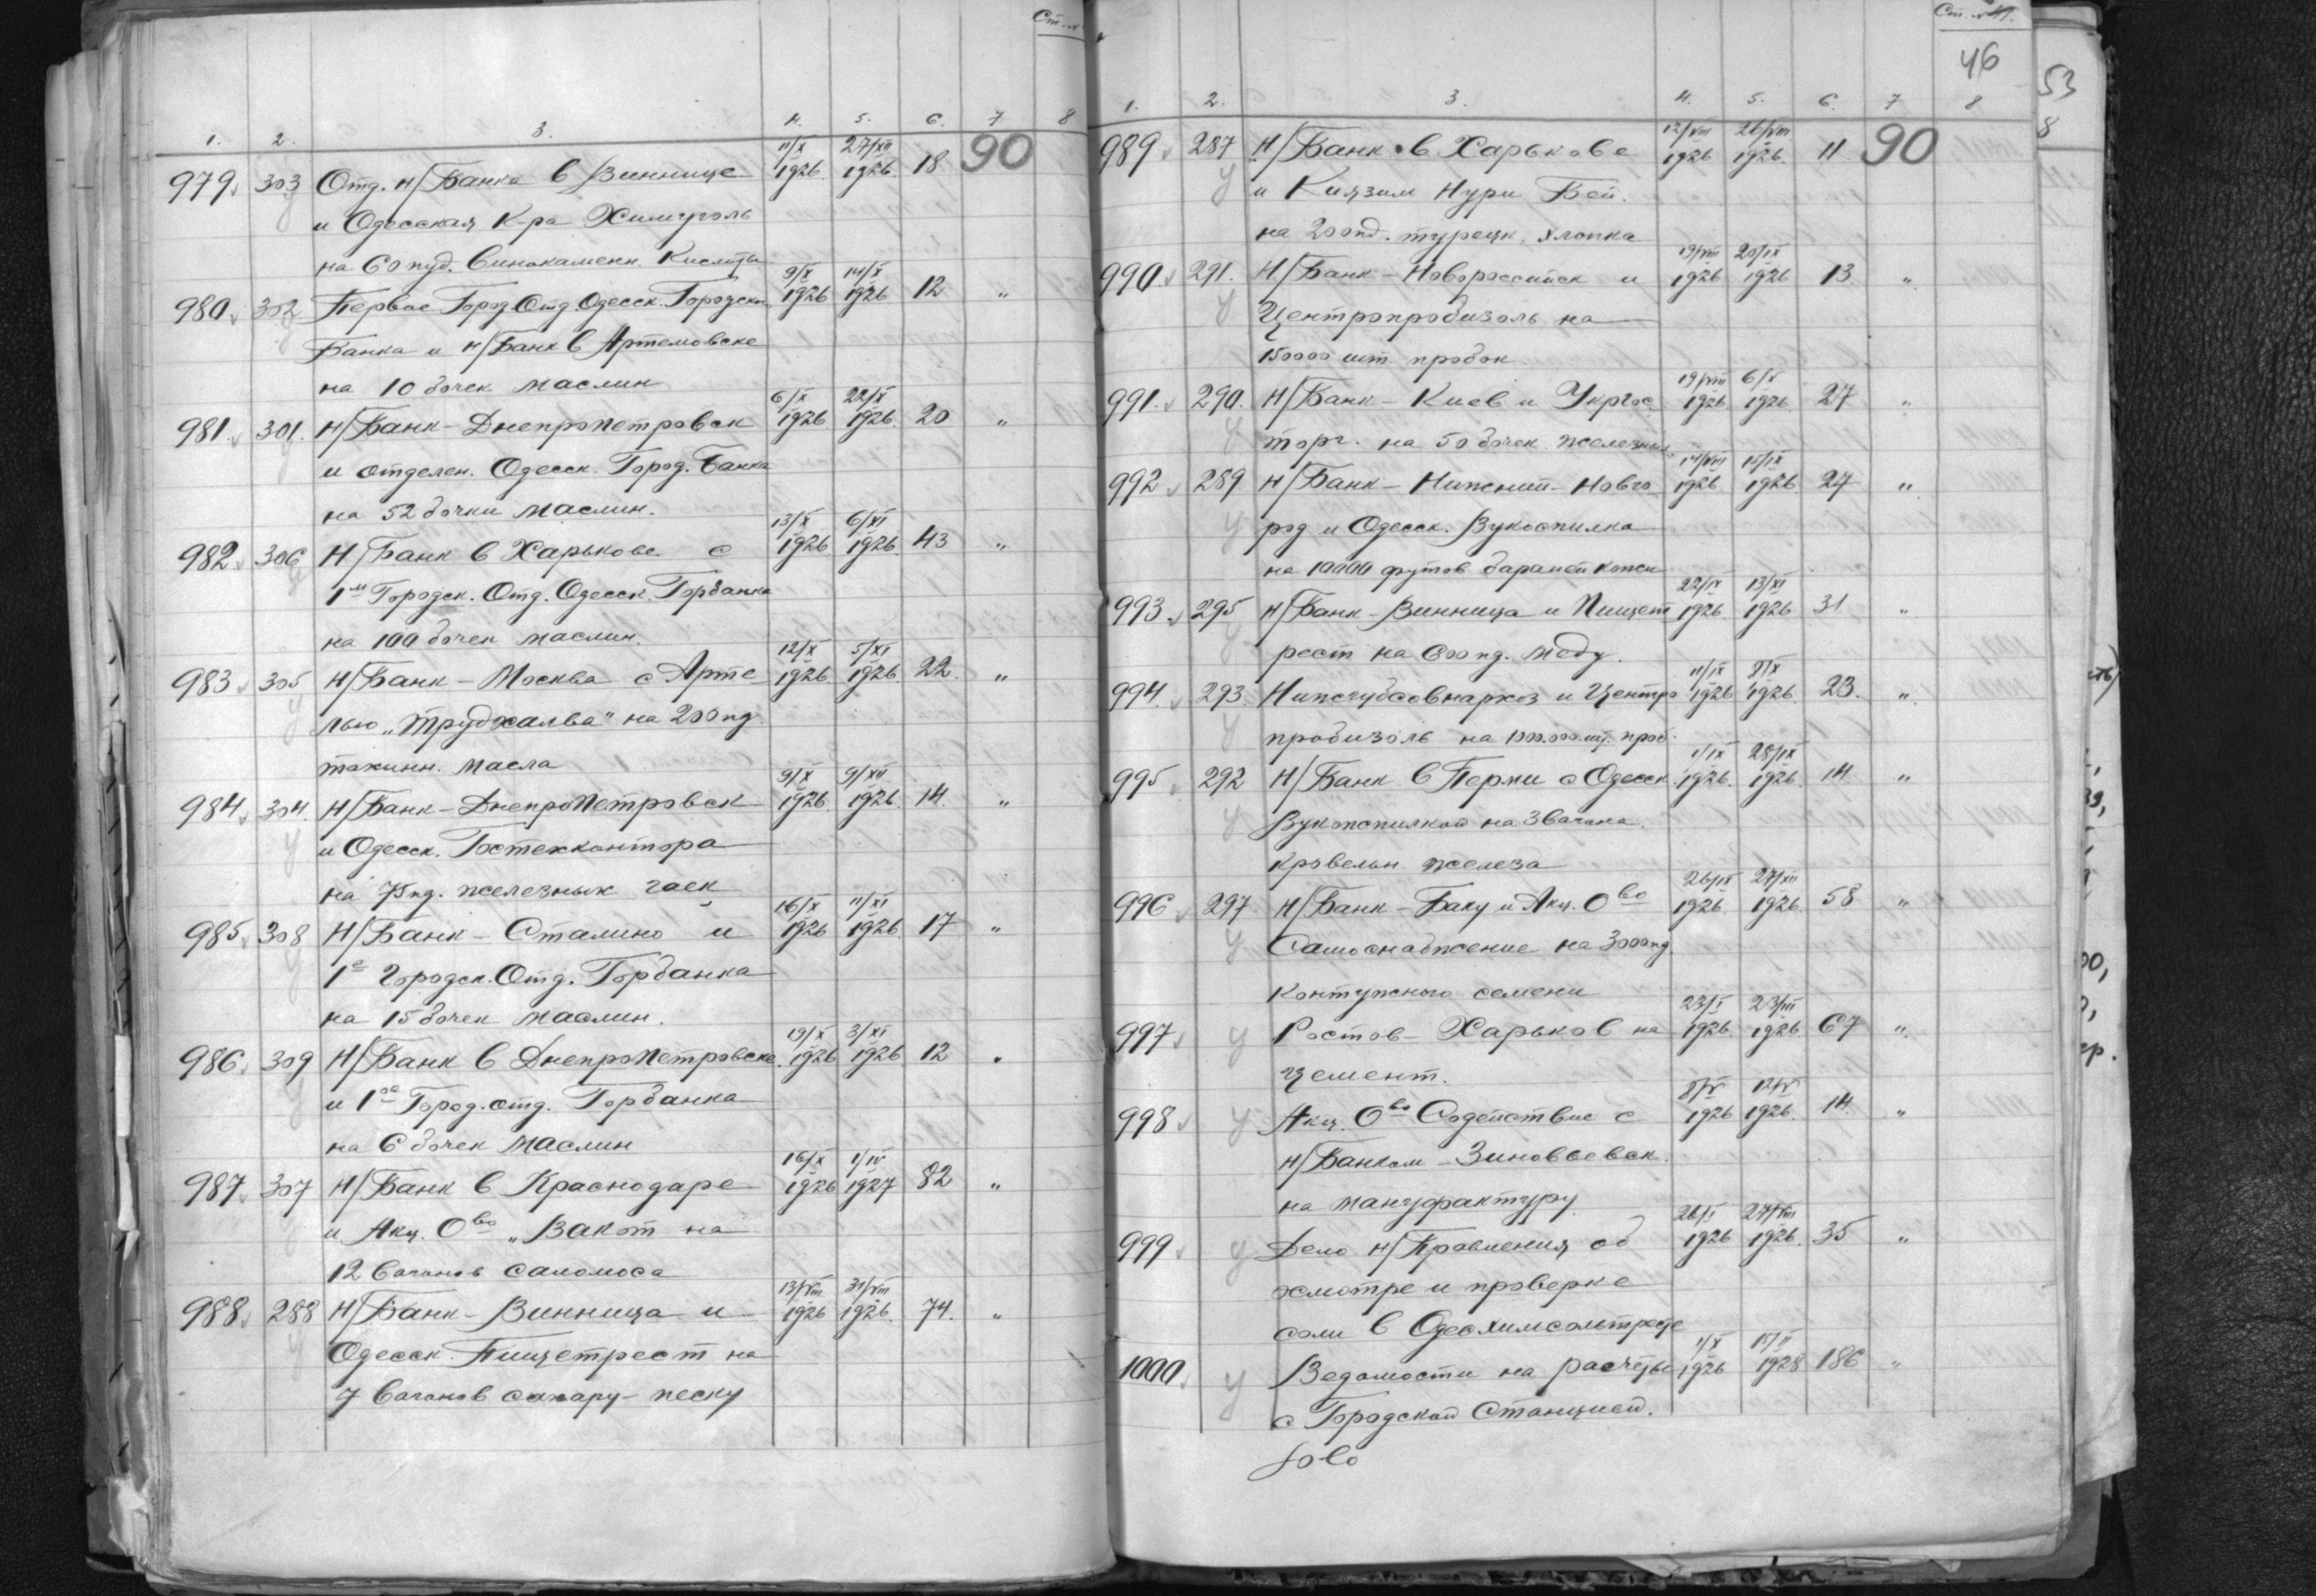 Ст. №
1. 2. 3. 4. 5. 6. 7 8
979 303 Отд. Н/Банка в Виннице 11/X 1926 27/XII 1926. 18 90
и Одесская К-ра Химуголь
на 60 пуд. Винокаменн. Кислоты
980 302 Первое Город. Отд. Одесск. Городск. 9/X 1926 14/X 1926 12 "
Банка и Н/Банк в Артемовске
на 10 бочек маслин
981. 301. Н/Банк-Днепропетровск 6/X 1926 22/X 1926. 20 "
и отделен. Одесск. Город. Банка
на 52 бочки маслин.
982 306 Н/Банк в Харькове с 13/X 1926 6/XI 1926. 43 "
1м Городск. Отд. Одесск. Горбанка
на 100 бочек маслин.
983 305 Н/Банк-Москва с Арте 12/X 1926. 5/XI 1926. 22. "
лью „Трудхалва" на 200 пд.
тахинн. масла
984 304. Н/Банк-Днепропетровск 9/X 1926 9/XII 1926. 14. "
и Одесск. Гостехконтора
на 75 пд. железных гаек
985 308 Н/Банк-Сталино и 16/X 1926 11/XI 1926. 17 "
1е Городск. Отд. Горбанка
на 15 бочек маслин.
986 309 Н/Банк в Днепропетровске. 19/X 1926 3/XI 1926 12 "
и 1ое Город. отд. Горбанка
на 6 бочек маслин
987 307 Н/Банк в Краснодаре 16/X 1926 1/IV 1927 82 "
и Акц. О-во „Вакот на
12 вагонов саломоса
988 288 Н/Банк-Винница и 13/VIII 1926 31/VIII 1926. 74. "
Одесск. Пищетрест на
7 вагонов сахару-песку
46
1. 2. 3. 4. 5. 6. 7 8
989 287 Н/Банк в Харькове 12/VIII 1926 26/VIII 1926. 11 90
и Киязим Нури Бей.
на 200 пд. турецк. хлопка
990 291. Н/Банк-Новороссийск и 19/VIII 1926 20/IX 1926 13 "
Центропробизоль на
150000 шт. пробок
991. 290. Н/Банк-Киев и Укргос 19/VIII 1926 6/X 1926. 27 "
торг. на 50 бочек железных
992 289 Н/Банк-Нижний-Новго 14/VIII 1926. 15/IX 1926 27 "
род и Одесск. Вукоспилка
на 10000 футов бараньей кожи
993. 295 Н/Банк-Винница и Пищет 22/IX 1926. 13/XI 1926 31 "
рест на 600 пд. меду.
994. 293. Нижгубсовнархоз и Центро 11/IX 1926 9/X 1926. 23. "
пробизоль на 1000.000 шт. проб.
995 292 Н/Банк в Перми с Одесск. 1/IX 1926. 28/IX 1926. 14. "
Вукоспилкой на 3 вагона
кровельн. железа
996 297 Н/Банк-Баку и Акц. О-во 26/IX 1926. 27/XII 1926. 58 "
Самоснабжение на 3000 пд
семени
997 Ростов-Харьков на 23/I 1926. 23/III 1926 67 "
цемент.
998 Акц. О-во Содействие с 8/IV 1926 12/IV 1926. 14. "
Н/Банком-Зиновьевск.
на мануфактуру
999 Дело Н/Правления об 26/I 1926 27/VIII 1926. 35 "
осмотре и проверке
соли в Одесхимсольтресте
1000 Ведомости на расчеты 1/X 1926 15/II 1928 186 "
с Городской Станцией.
53
8